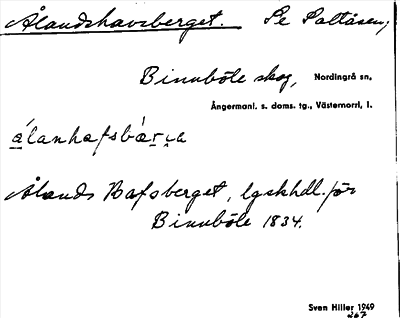 Ålandshavsberget. Se Saltåsen,
Binnböle skog, Nordingrå sn,
Ångermanl. s. doms. tg., Västernorrl. l.
Ålands Hafsberget, lgskhdl. för
Binnböle 1834.
Sven Hiller 1949
267